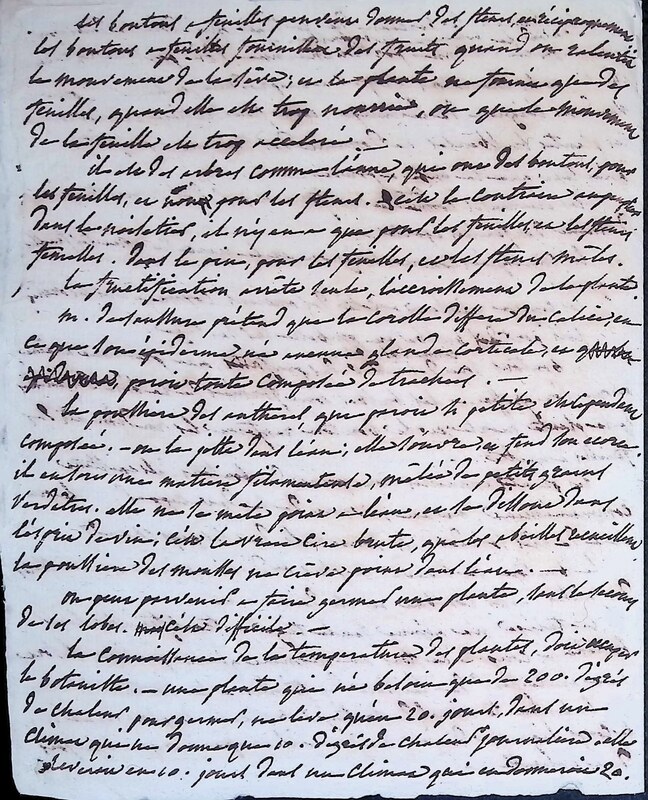 les boutons a feuilles peuvent donner des fleurs, et réciproquement
les boutons a feuilles fourniront des fruits quand on ralentit
le mouvement de la séve; et la plante ne fournit que des
feuilles, quand elle est trop nourrie, ou que le mouvement
de la feuille est trop acceleré —
il est des arbres comme l'aune, qui ont des boutons, pour
les feuilles, et pour les fleurs. c'est le contraire
dans le noisetier, il n'y en a que pour les feuilles, et les fleurs
femelles. dans le pin, pour les feuilles, et les fleurs mâles.
la fructification arrête seule, l'accroissement de la plante
m. desaussure prétend que la corolle differe du calice, en
ce que son épiderme, n'a aucune glande corticale, et
paroit toute composée de trachées. —
la poussiere des antheres, que paroit si petite, est cependant
composée. — on la jette dans l'eau; elle s'ouvre, et fend son ecorce
il en sort une matiere filamenteuse, mêlée de petits grains
verdâtres. elle ne se mêle point a l'eau, et se dissout dans
l'esprit de vin; c'est la vraie cire brute, que les abeilles recueillent,
la poussiere des mousses ne crève point dans l'eau. —
on peut parvenir a faire germer une plante, sans le secours
de ses lobes. mais c'est difficile. —
la connoissance de la temperature des plantes, doit occuper
le botaniste. — une plante qui n'a besoin que de 200. dégrés
de chaleur pour germer, ne leve qu'en 20. jours, dans un
climat qui ne donne que 10. dégrés de chaleur journaliere, elle
leveroit en 10. jours dans un climat qui en donneroit 20.